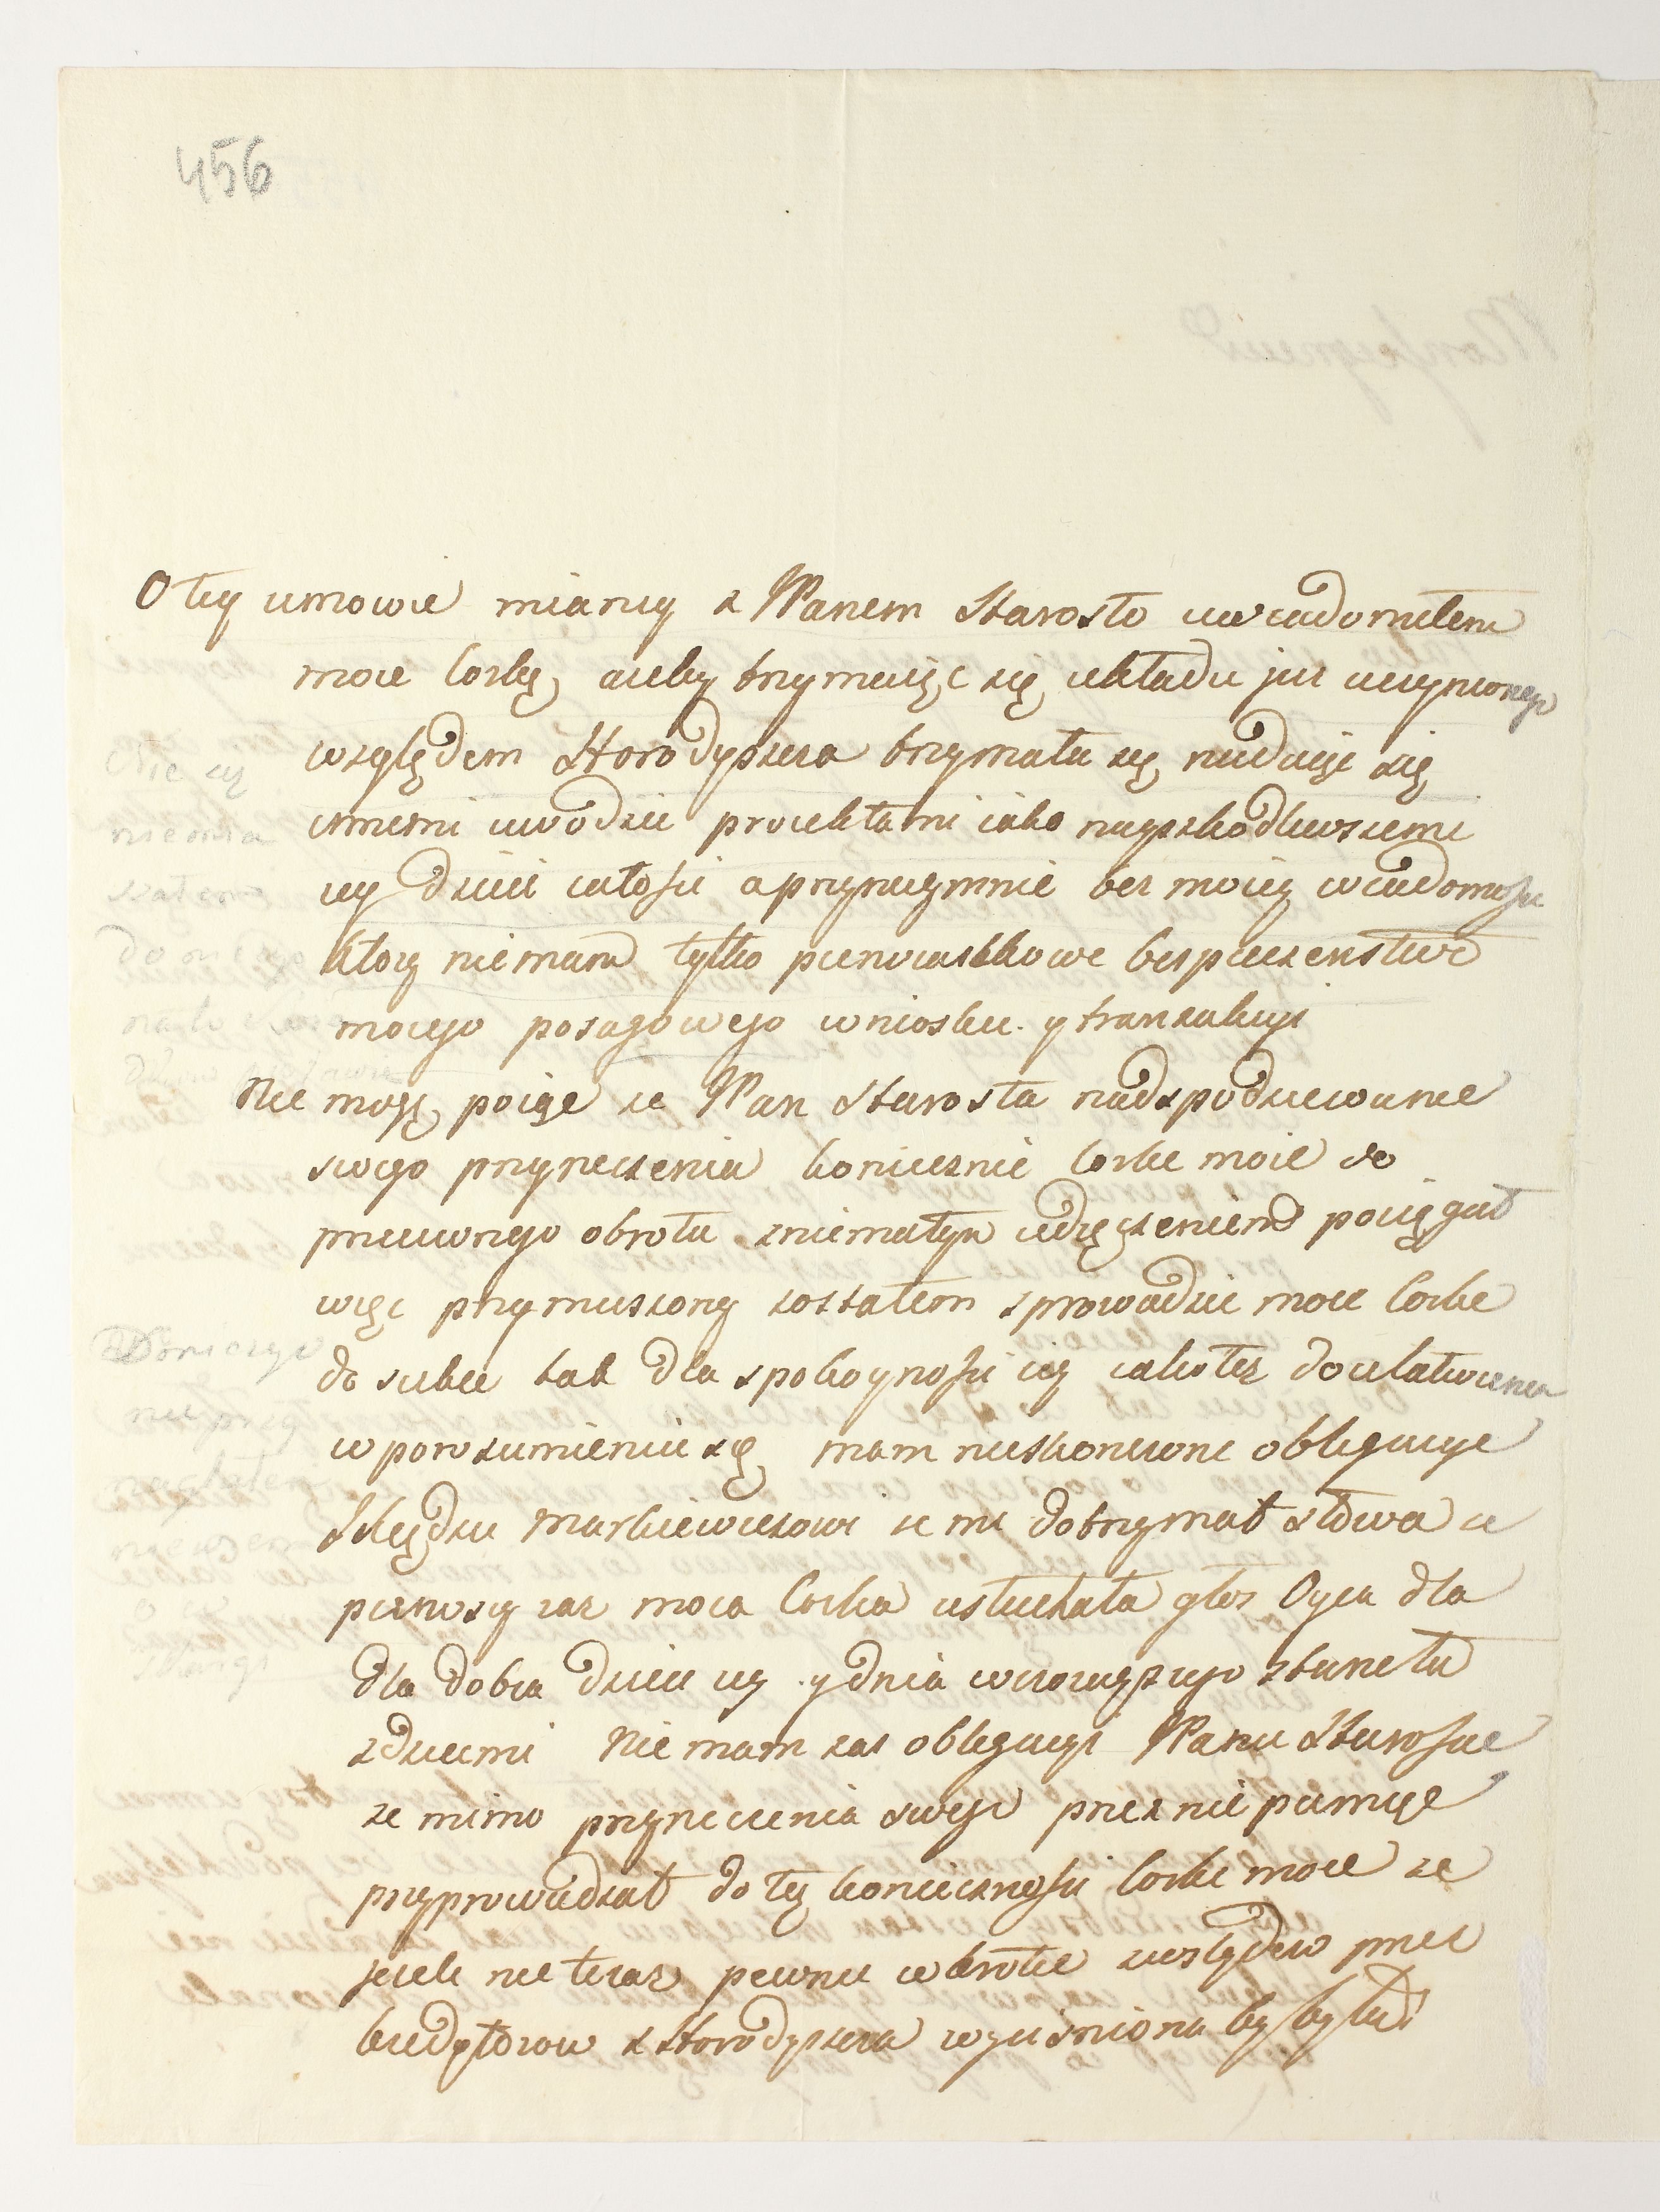 456
O tey umowie mianey z JPanem Starosto uwiadomiłem
moie Corkę, ażeby trzymaiąc się układu już uczynionego
względem Horodyszcza trzymała się, niedaiąc się
innemi uwodzić proiektami iako nayszkodliwszemi
iey Dzieci całości a przynaymnie bez moiey wiadomości
ktory niemam tylko pierwiastkowe bespieczenstwo
moiego posagowego wniosku y tranzakcyi
Nie mogę poiąc że JPan Starosta nadspodziewanie
swego przyrzeczenia koniecznie Corke moie do
przeciwnego obrotu zniemałym udręczeniem pociągał
więc przymuszony zostałem sprowadzic moie Corke
do siebie tak dla spokoyności iey iako też do ułatwienia
w porozumieniu się, mam nieskonczone obligacye
Xiędzu Markiewiczowi że mi dotrzymał słowa że
pierwszy raz moia Corka usłuchała głos Oyca dla
dla dobra Dzieci iey y dnia wczorayszego stanęła
z Dziecmi Nie mam zas obligacyi JPanu Staroscie
że mimo przyrzeczenia swego przez niepamięc
przyprowadzał do tey konieczności Corke moie że
jeżeli nie teraz pewnie wkrotce względow przez
kredytorow z Horodyszcza wyciśniona by była
Nie iey
do niego
nie przy